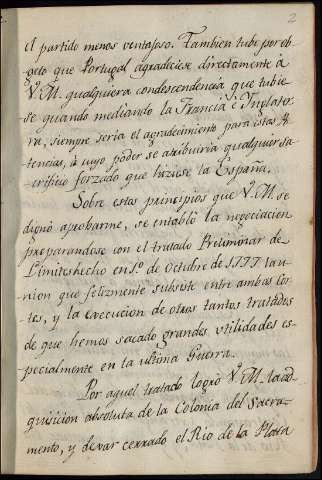 2
el partido menos ventajoso. Tambien tube por ob-
geto que Portugal agradeciese directamente á
V. M. qualquiera condescendencia que tubie-
se quando mediando la Francia é Inglater-
ra, siempre seria el agradecimiento para estas Po-
tencias, á cuyo poder se atribuiria qualquier sa-
crificio forzado que hiziese la España.
Sobre estos principios que V. M. se
dignó aprobarme, se entabló la negociacion
preparandose con el tratado Preliminar de
Limites hecho en 1.º de Octubre de 1777 la u-
nion que felizmente subsiste entre ambas Cor-
tes, y la execucion de otros tantos tratados
de que hemos sacado grandes utilidades es-
pecialmente en la ultima Guerra.
Por aquel tratado logró V. M. la ad-
quisicion absoluta de la Colonia del Sacra-
mento, y dexar cerrado el Rio de la Plata